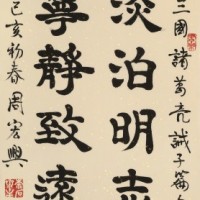 三國諸葛亮誡子篇
淡泊明志
寧靜致遠
己亥初春周宏興